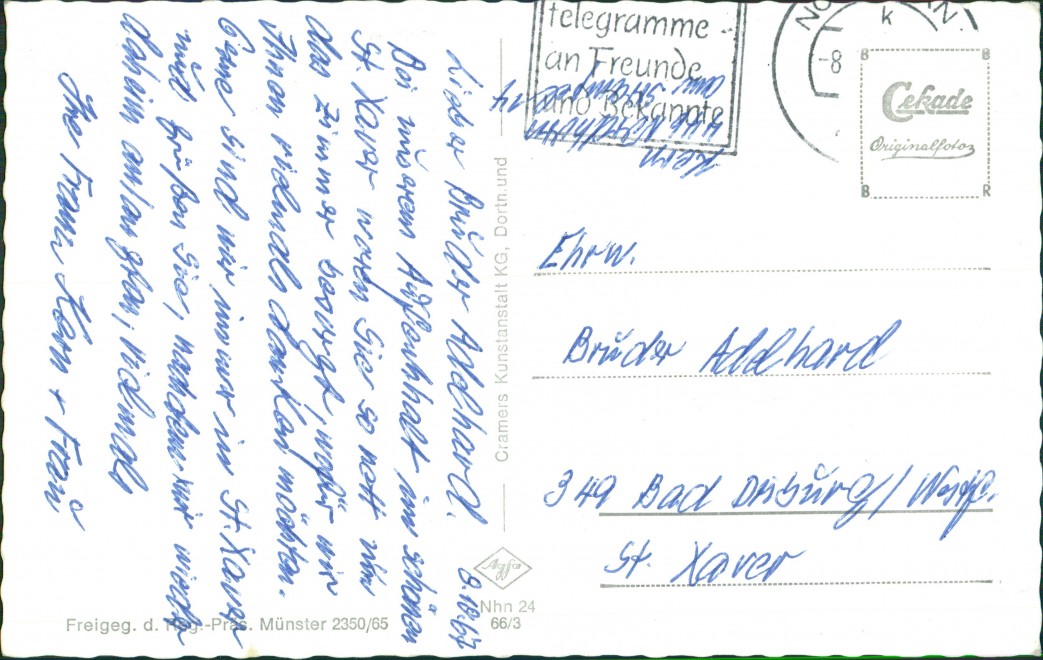 telegramme
an Freunde
und Bekannte
k
-8
Cekade
Originalfoto
B B
B R
Kern
Lieber Bruder Adelhard.
8.10.67
Bei unserem Aufenthalt im schönen
St. Xaver waren Sie so nett uns
das Zimmer besorgt, wofür wir
Ihnen vielmals danken möchten.
Gerne sind wir immer in St. Xaver
und grüßen Sie, nachdem wir wieder
daheim anlangten, vielmals
Ihre Franz Kern + Frau
Ehrw.
Bruder Adelhard
349 Bad Driburg/Westf.
St. Xaver
Cramers Kunstanstalt KG, Dortm.und
Agfa
Nhn 24
66/3
Freigeg. d. Reg.-Präs. Münster 2350/65